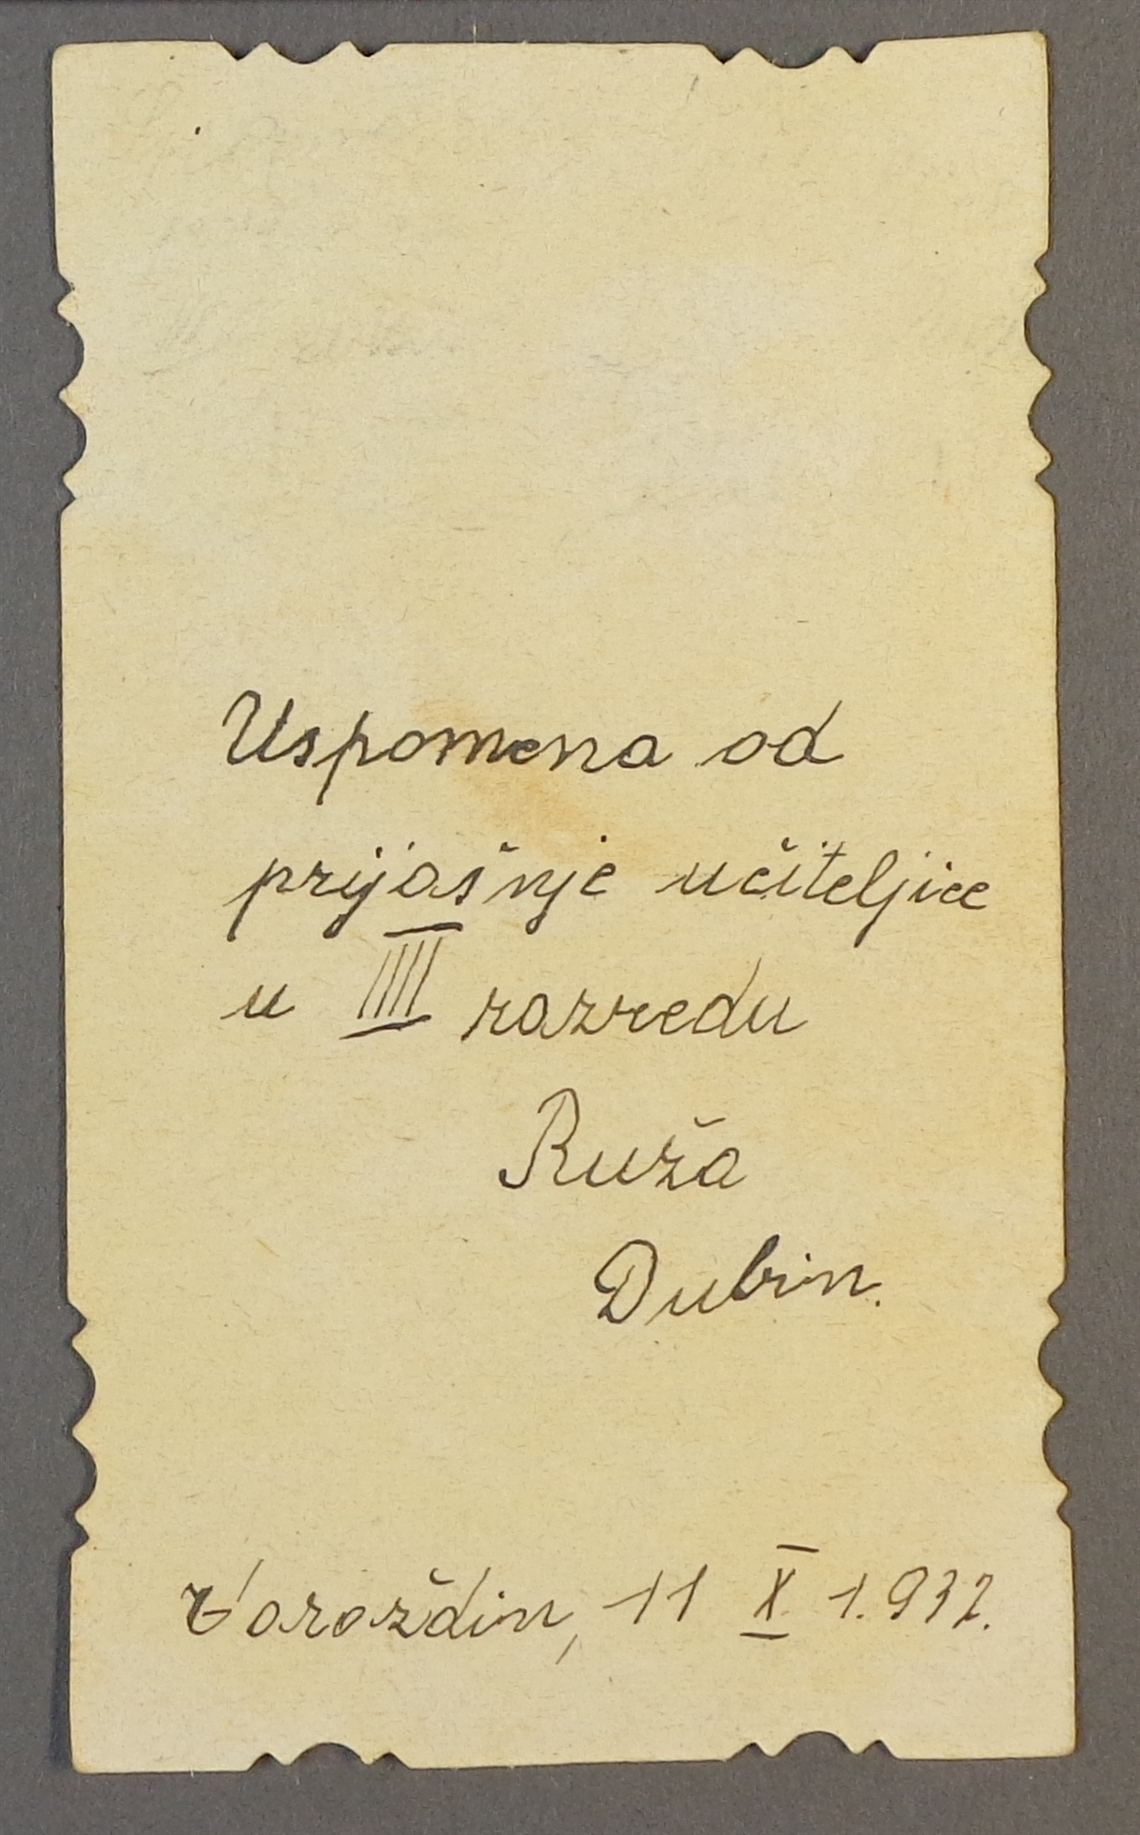 Uspomena od
prijašnje učiteljice
u IIII razredu
Ruža
Dubin.
Varaždin, 11 X. 1.932.